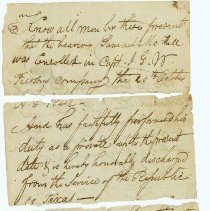 Know all men by these presents
that the bearer Samuel McFall
was Enrolled in Capt. J. G. W.
company the 20th October
And has faithfully performed his
duty as a private until the present
date & is hereby honorably discharged
from the Service of the Republic
of Texas